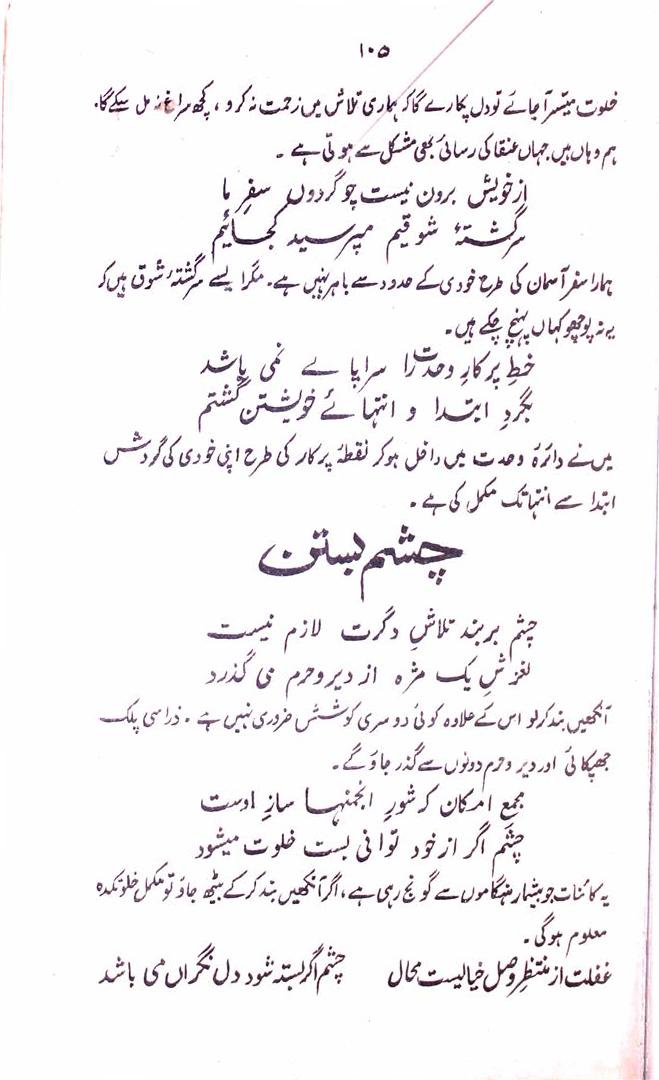 ۱۰۵
خلوت میسّر آجائے تو دل پکارے گا کہ ہماری تلاش میں زحمت نہ کرو ، کچھ سراغ نہ مل سکے گا.
ہم وہاں ہیں جہاں عنقا کی رسائی بھی مشکل سے ہوتی ہے ۔
از خویش برون نیست چو گردوں سفرِ ما
سرگشتۂ شوقیم مپرسید کجائیم
ہمارا سفر آسمان کی طرح خودی کے حدود سے باہر نہیں ہے۔ مگر ایسے سرگشتۂ شوق ہیں کہ
یہ نہ پوچھو کہاں پہنچ چکے ہیں۔
خطِ پرکارِ وحدت را سراپا ے نمی باشد
بگردِ ابتدا و انتہائے خویشتن گشتم
میں نے دائرۂ وحدت میں داخل ہو کر نقطۂ پرکار کی طرح اپنی خودی کی گردش
ابتدا سے انتہا تک مکمل کی ہے ۔
چشم بستن
چشم بربند تلاشِ دگرت لازم نیست
لغزشِ یک مژہ از دیر و حرم می گذرد
آنکھیں بند کر لو اس کے علاوہ کوئی دوسری کوشش ضروری نہیں ہے ۔ ذرا سی پلک
جھپکائی اور دیر و حرم دونوں سے گذر جاؤ گے۔
مجمعِ امکان کہ شورِ انجمنہا سازِ اوست
چشم اگر از خود توانی بست خلوت میشود
یہ کائنات جو بیشمار ہنگاموں سے گونج رہی ہے، اگر آنکھیں بند کر کے بیٹھ جاؤ تو مکمل خلوتکدہ
معلوم ہو گی۔
غفلت از منتظرِ وصل خیالیست محال چشم اگر بستہ شود دل نگراں می باشد